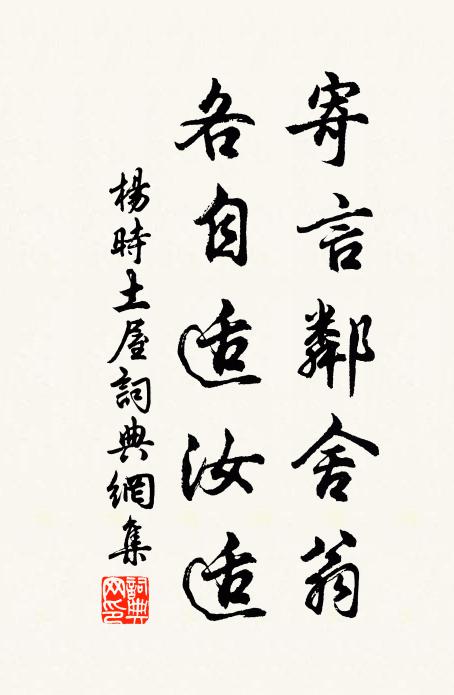 寄言鄰舍翁
各自适汝适
楊時土屋詞典網集
詞典網印